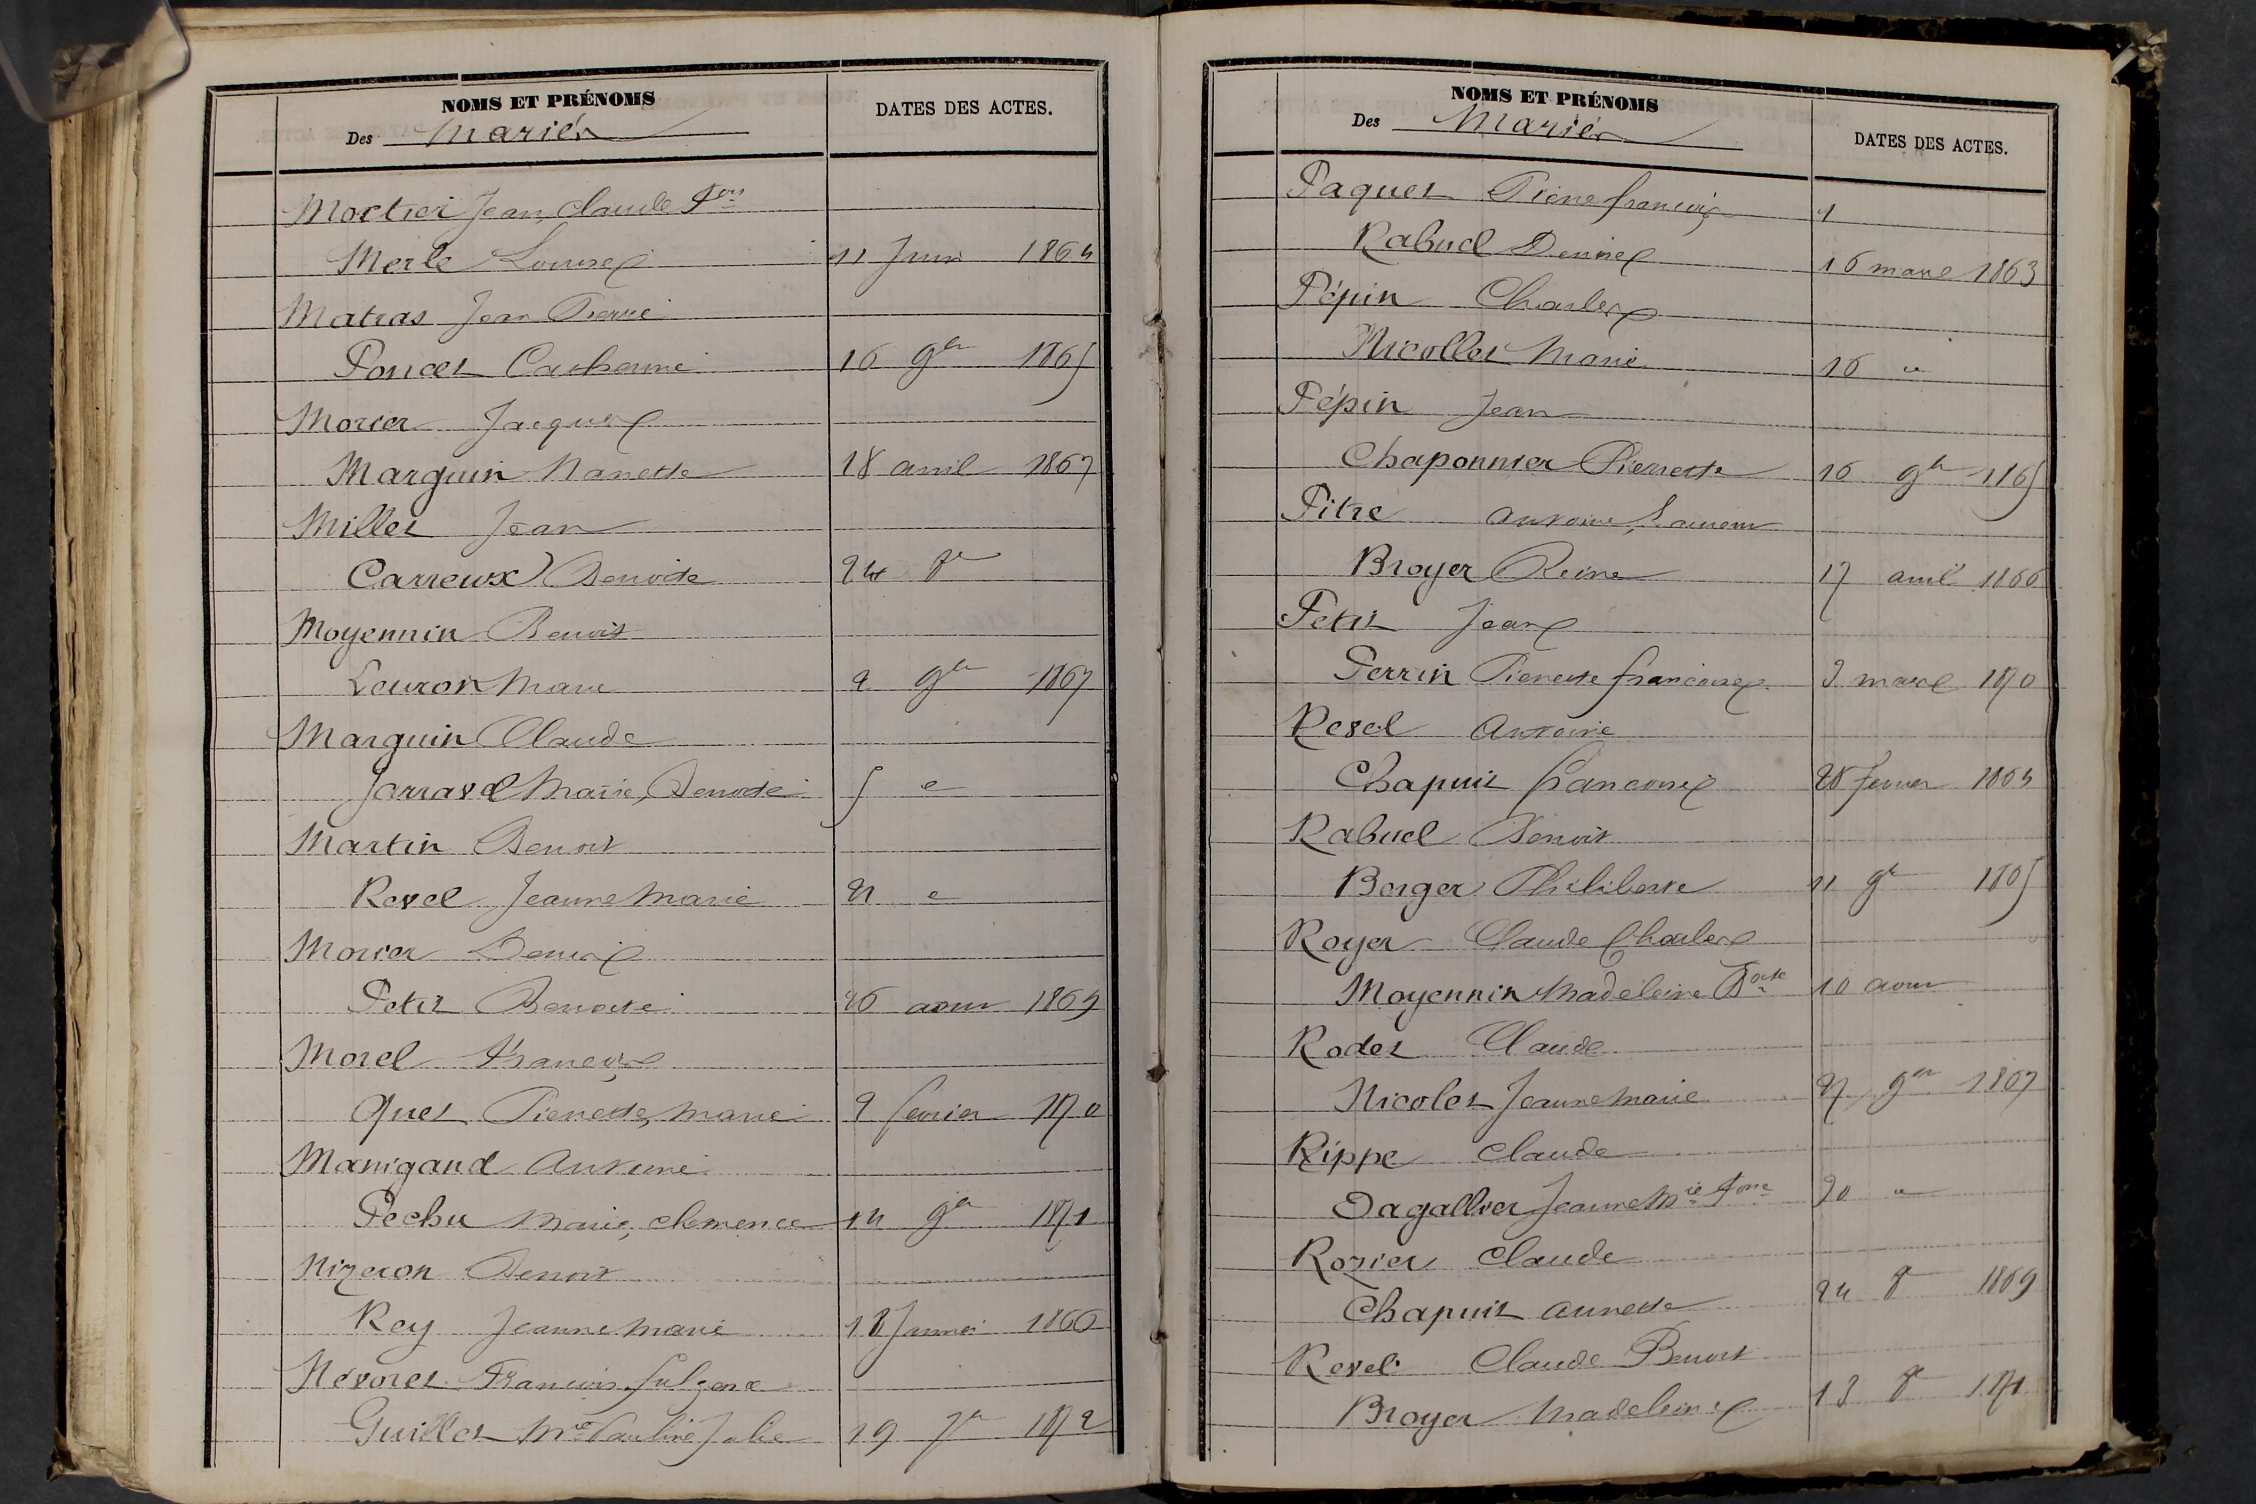 NOMS ET PRÉNOMS
Des Mariés
DATES DES ACTES.
Moctier Jean, Claude Fois
Merle Louise 11 Juin 1864
Matras Jean Pierre
Poncet Catherine 16 9bre 1865
Morier Jacques
Marguin Nanette 18 avril 1867
Millet Jean
Carreux Benoite 24 8e
Moyennin Benoit
Leuron Marie 2 9bre 1867
Marguin Claude
Jarravel Marie, Benoite 5 e
Martin Benoit
Revel Jeanne Marie 21 e
Morier Denis
Petit Benoite 26 aout 1869
Morel François
Quet Pierrette, Marie 9 fevrier 1870
Manigand Antoine
Pechu Marie, Clemence 14 9bre 1871
Nizeron Benoit
Rey Jeanne Marie 18 Janvier 1866
Nesvoret Francois fulgence
Guillot Mie Pauline Julie 19 7bre 1872
NOMS ET PRÉNOMS
Des Mariés
DATES DES ACTES.
Paquet Pierre françois
Rabuel Denise 16 mars 1863
Pépin Charles
Nicollet Marie 16 "
Pépin Jean
Chaponnier Pierrette 16 9bre 1865
Pitre Antoine, Laurent
Broyer Reine 17 avril 1866
Petit Jean
Perrin Pierrette françoise 3 mars 1870
Revel Antoine
Chapuit françoise 28 fevrier 1864
Rabuel Benoit
Berger Philiberte 11 9e 1865
Royer Claude Charles
Moyennin Madeleine Boite 10 aout
Rodet Claude
Nicolet Jeanne Marie 27 9bre 1867
Rippe Claude
Dagallier Jeanne Mie Foise 30 "
Rozier Claude
Chapuit Annette 24 8e 1869
Revel Claude Benoit
Broyer Madeleine 13 8e 1871